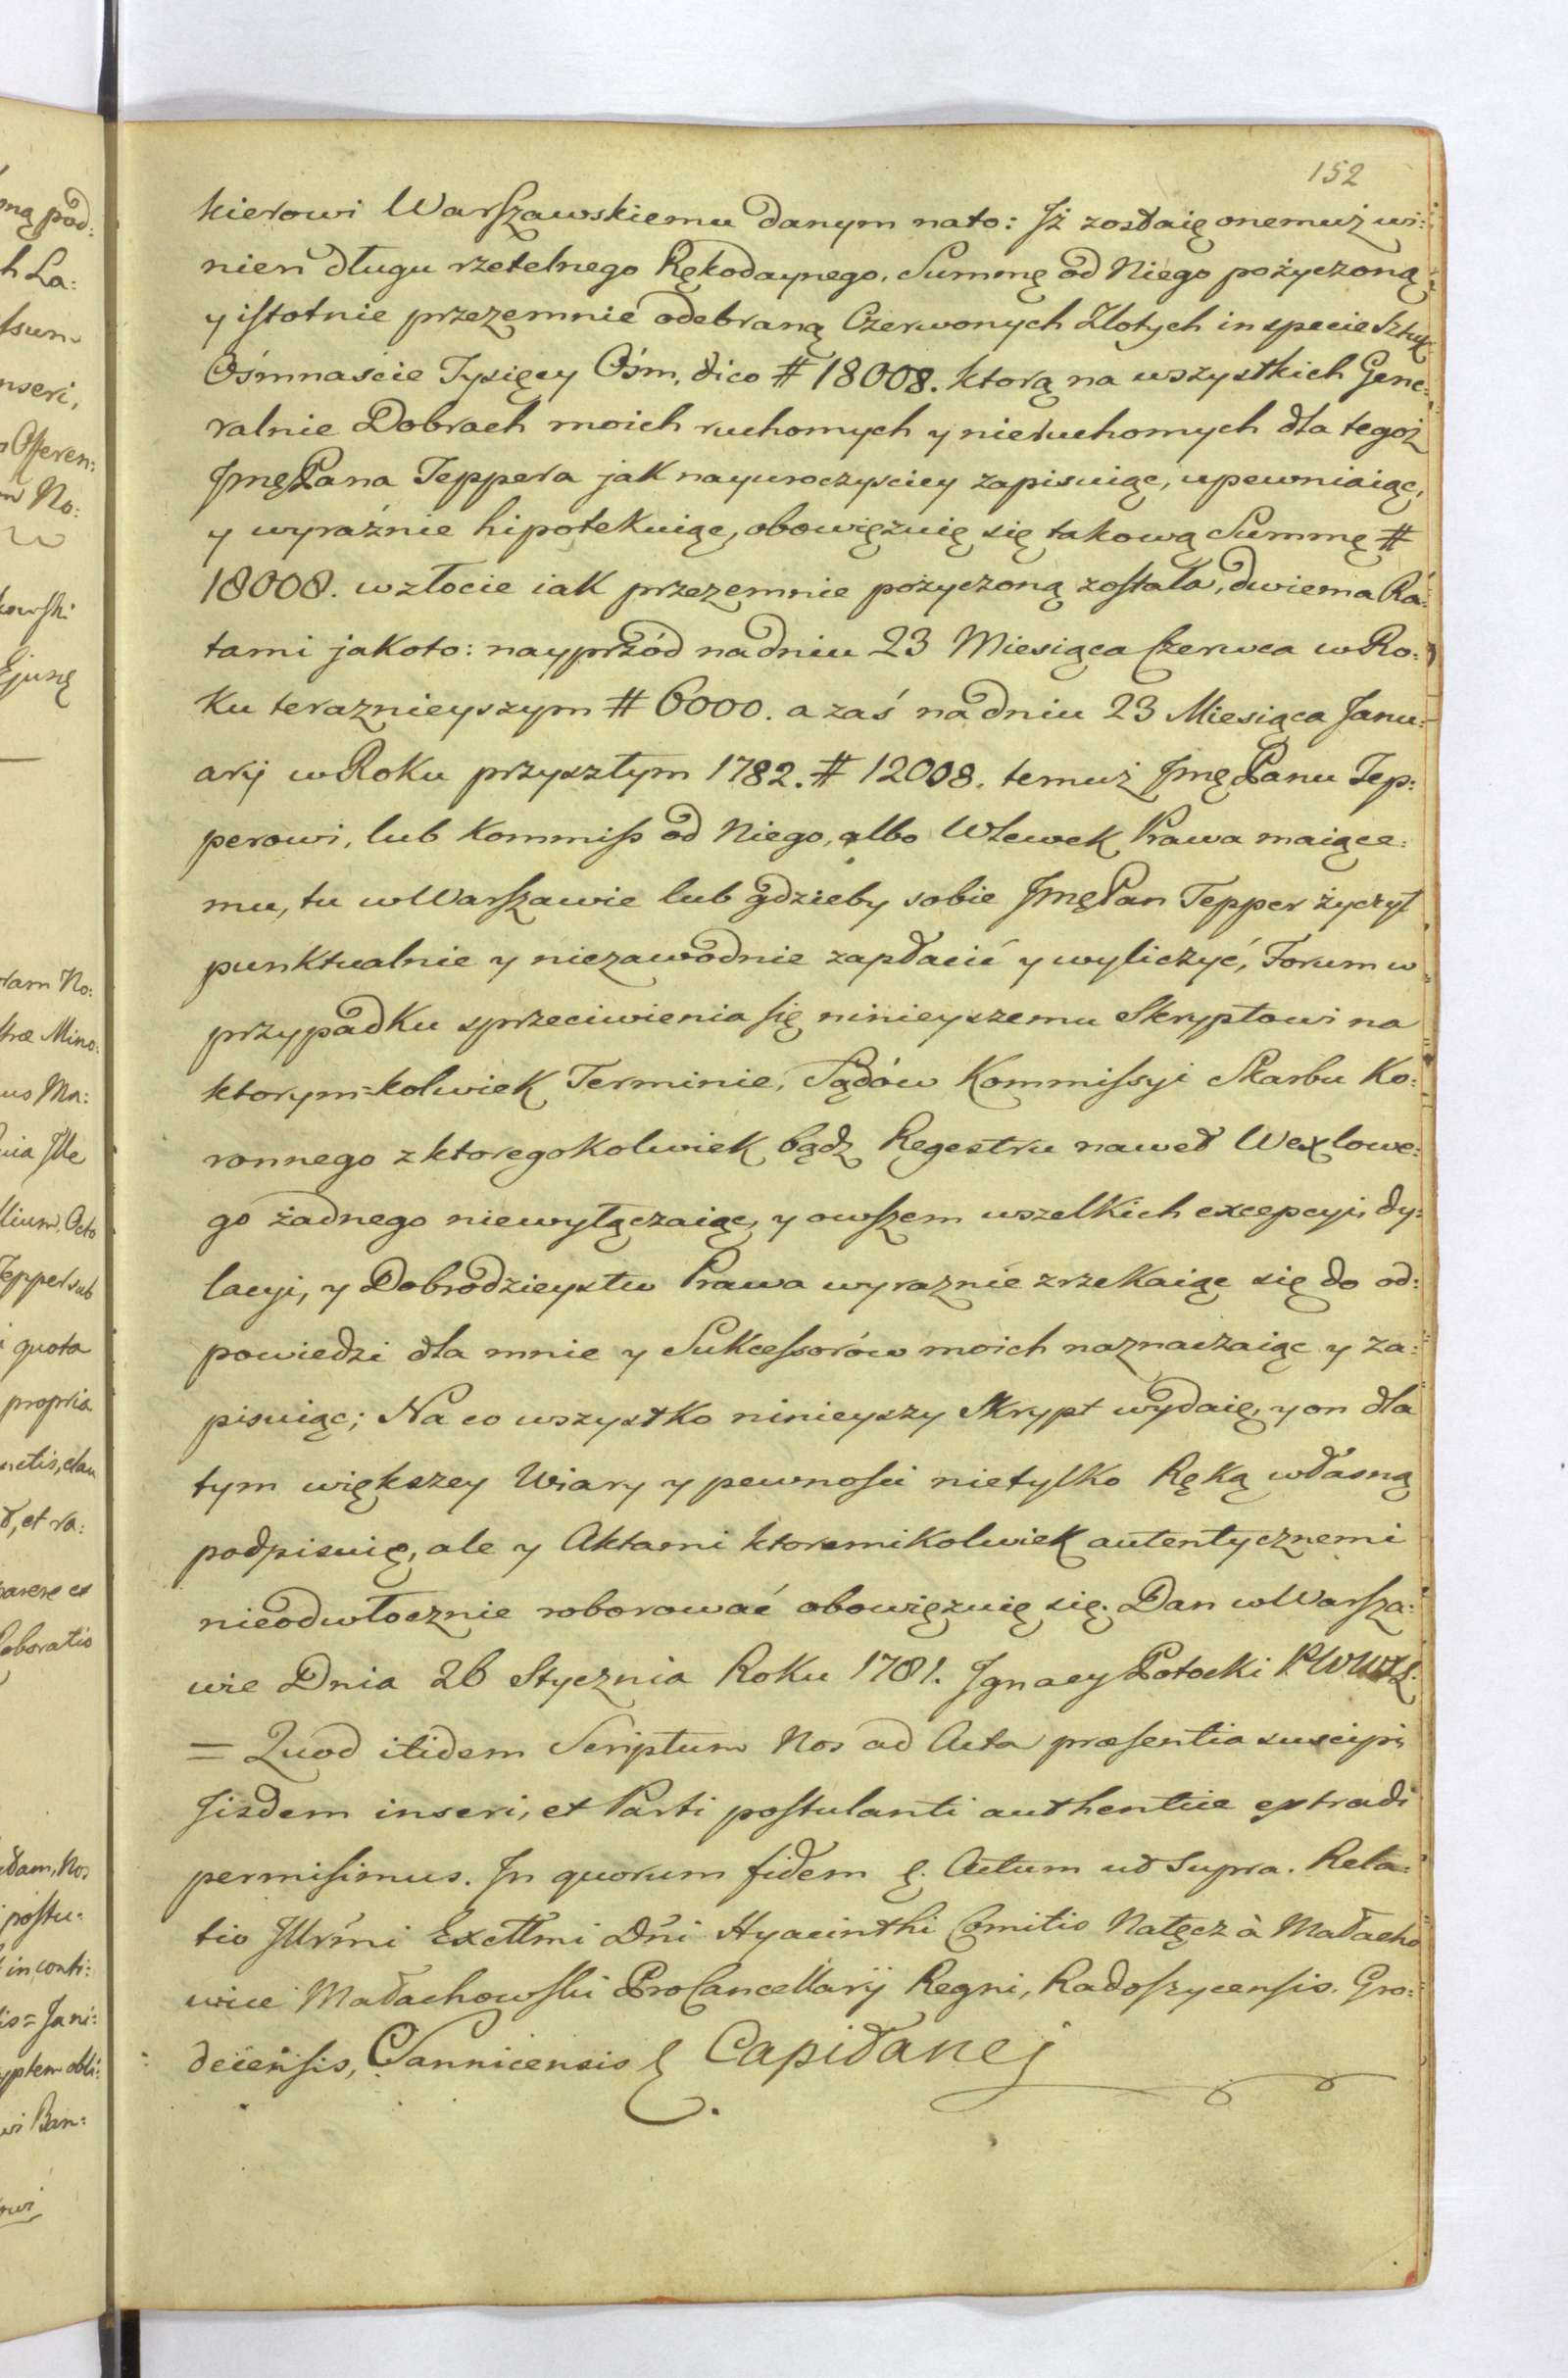 152
kierowi Warszawskiemu danym nato: Jż zostaię onemuż wi:
nien długu rzetelnego Rękodaynego, Summę od Niego pożyczoną
y istotnie przezemnie odebraną Czerwonych Złotych in specie Sztuk
Ośmnaście Tysięcy Ośm, dico # 18008. ktorą na wszystkich Gene:
ralnie Dobrach moich ruchomych y nieruchomych dla tegoż
JmęPana Teppera jak nayuroczyściey zapisuiąc, upewniaiąc,
y wyraźnie hipotekuiąc, obowięzuię się takową Summę #
18008. wzłocie iak przezemnie pożyczoną została, dwiema Ra:
tami jakoto: nayprzód nadniu 23 Miesiąca Czerwca w Ro:
ku teraznieyszym # 6000. a zaś nadniu 23 Miesiąca Janu:
arij w Roku przyszłym 1782. # 12008. temuż Jmę Panu Tep:
perowi, lub Kommiss od Niego, albo Wlewek Prawa maiące:
mu, tu w Warszawie lub gdzieby sobie JmęPan Tepper życzył
punktualnie y niezawodnie zapłacić y wyliczyć, Forum w
przypadku sprzeciwienia się ninieyszemu Skryptowi na
ktorym=kolwiek Terminie, Sądów Kommissyi Skarbu Ko:
ronnego z ktoregokolwiek bądz Regestru nawet Wexlowe:
go żadnego niewyłączaiąc, y owszem wszelkich excepcyi, dy:
lacyi, y Dobrodzieystw Prawa wyraznie zrzekaiąc się do od:
powiedzi dla mnie y Sukcessorów moich naznaczaiąc y za:
pisuiąc; Na co wszystko ninieyszy Skrypt wydaię, y on dla
tym większey Wiary y pewności nietylko Ręką własną
podpisuię, ale y Aktami ktoremikolwiek autentycznemi
nieodwłocznie roborować obowięzuię się. Dan w Warsza:
wie Dnia 26 Stycznia Roku 1781. Jgnacy Potocki
= Quod itidem Scriptum Nos ad Acta præsentia suscipi,
Jisdem inseri, et Parti postulanti authentice extradi
permisimus. Jn quorum fidem &. Actum ut Supra. Rela:
tio Jllrmi Excllmi Dni Hyacinthi Comitis Nałęcz à Małacho
wice Małachowski ProCancellarij Regni, Radoszycensis. Gro:
decensis, Sannicensis & Capitanej